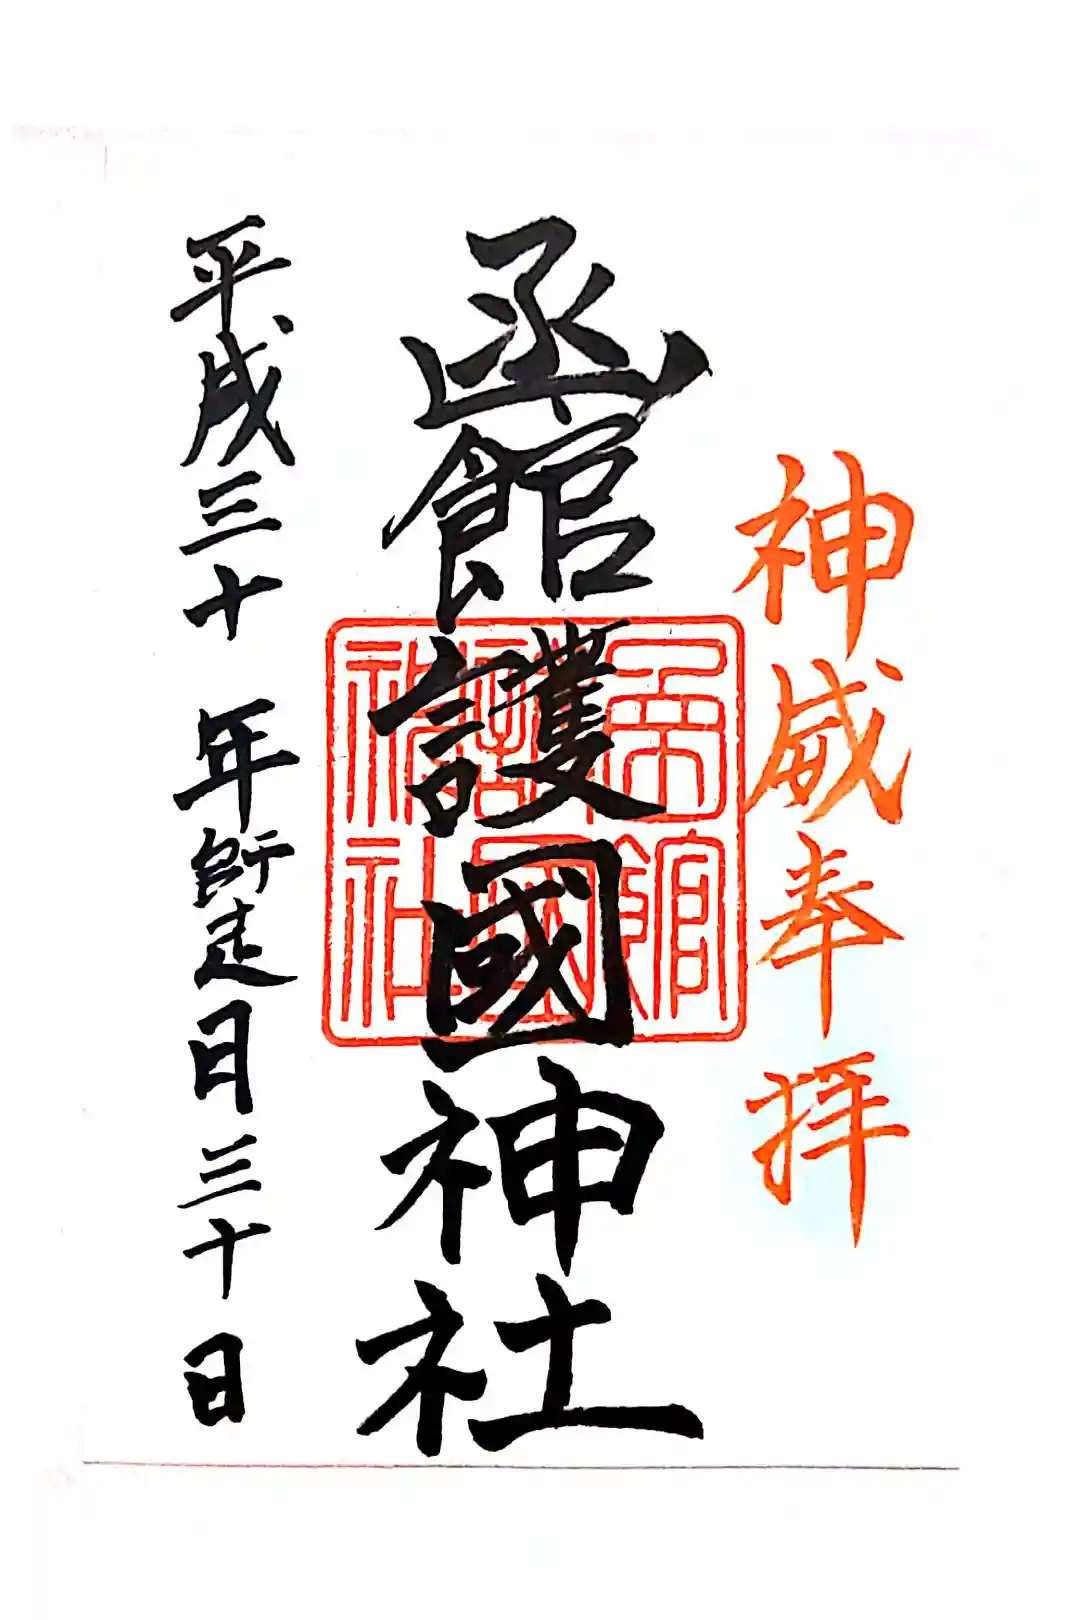 神威奉拝
函館護國神社
平成三十年師走月三十日
函館
護國
神社